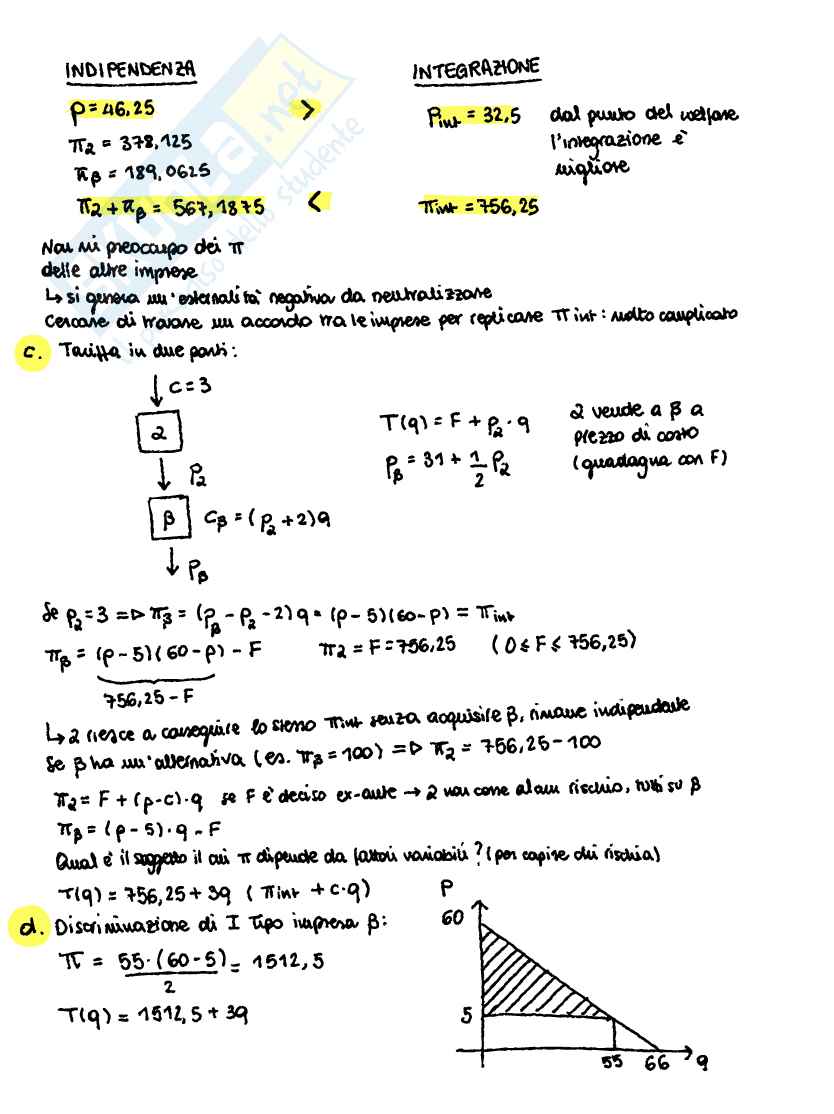 INDIPENDENZA
INTEGRAZIONE
p = 46,25 > Pint = 32,5 dal punto del welfare
l'integrazione è
migliore
π2 = 378,125
πβ = 189,0625
π2 + πβ = 567,1875 < πint = 756,25
Non mi preoccupo dei π
delle altre imprese
↳ si genera un'esternalità negativa da neutralizzare
Cercare di trovare un accordo tra le imprese per replicare πint : molto complicato
c. Tariffa in due parti :
↓ c = 3
2
↓ P2
β Cβ = (p2 + 2)q
↓ Pβ
T(q) = F + p2 · q
Pβ = 31 + 1/2 P2
2 vende a β a
prezzo di costo
(guadagna con F)
Se p2 = 3 => πβ = (pβ - p2 - 2) q = (p - 5)(60 - p) = πint
πβ = (p - 5)(60 - p) - F π2 = F = 756,25 (0 ≤ F ≤ 756,25)
756,25 - F
↳ 2 riesce a conseguire lo stesso πint senza acquisire β, rimane indipendente
Se β ha un'alternativa (es. πβ = 100) => π2 = 756,25 - 100
π2 = F + (p - c) · q se F è deciso ex-ante → 2 non corre alcun rischio, tutti su β
πβ = (p - 5) · q - F
Qual è il soggetto il cui π dipende da fattori variabili ? (per capire chi rischia)
T(q) = 756,25 + 3q ( πint + c · q)
d. Discriminazione di I Tipo impresa β :
π = 55 · (60 - 5)/2 = 1512,5
T(q) = 1512,5 + 3q
P
60
5
55 66 q
SKUOLA.net
il paradiso dello studente